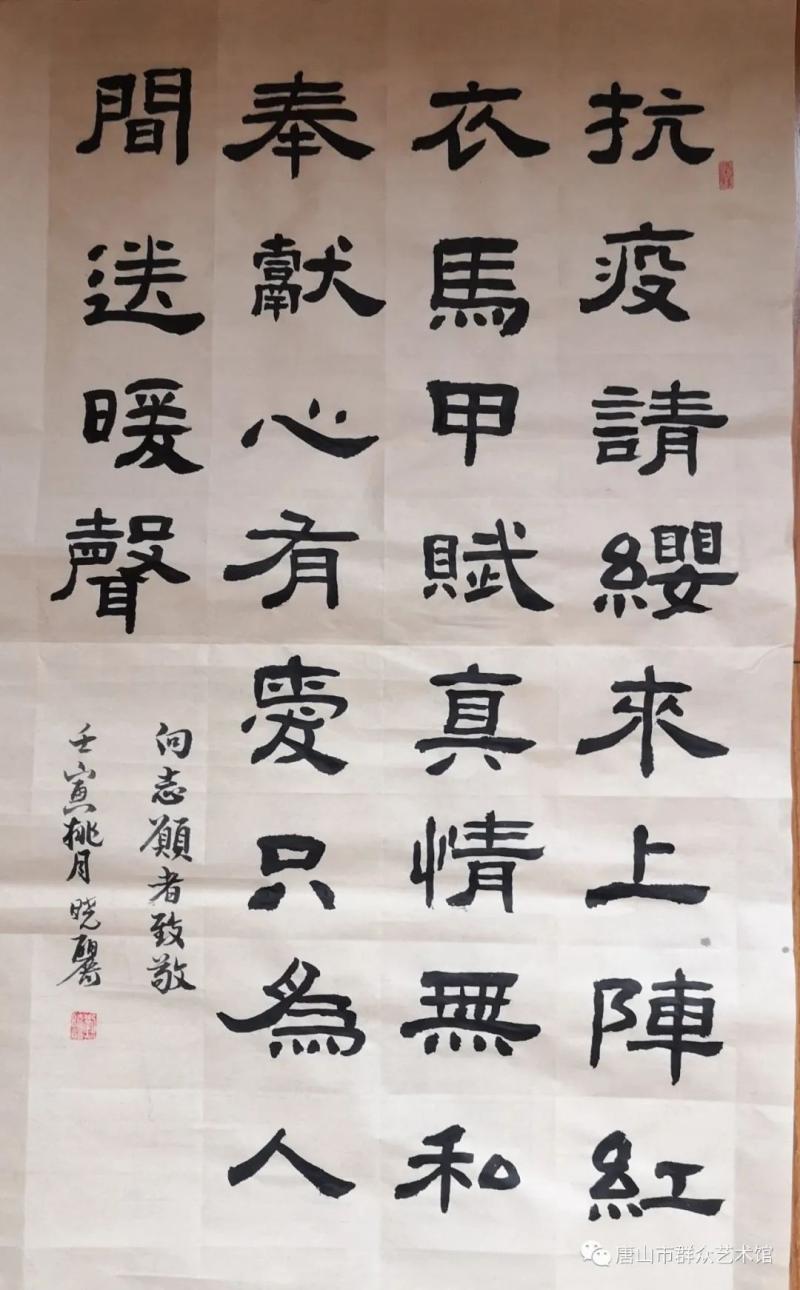 抗疫請纓來上陣紅
衣馬甲賦真情無和
奉獻心有愛只為人
間送暖聲
向志願者致敬
壬寅桃月 曉麗
唐山市群众艺术馆